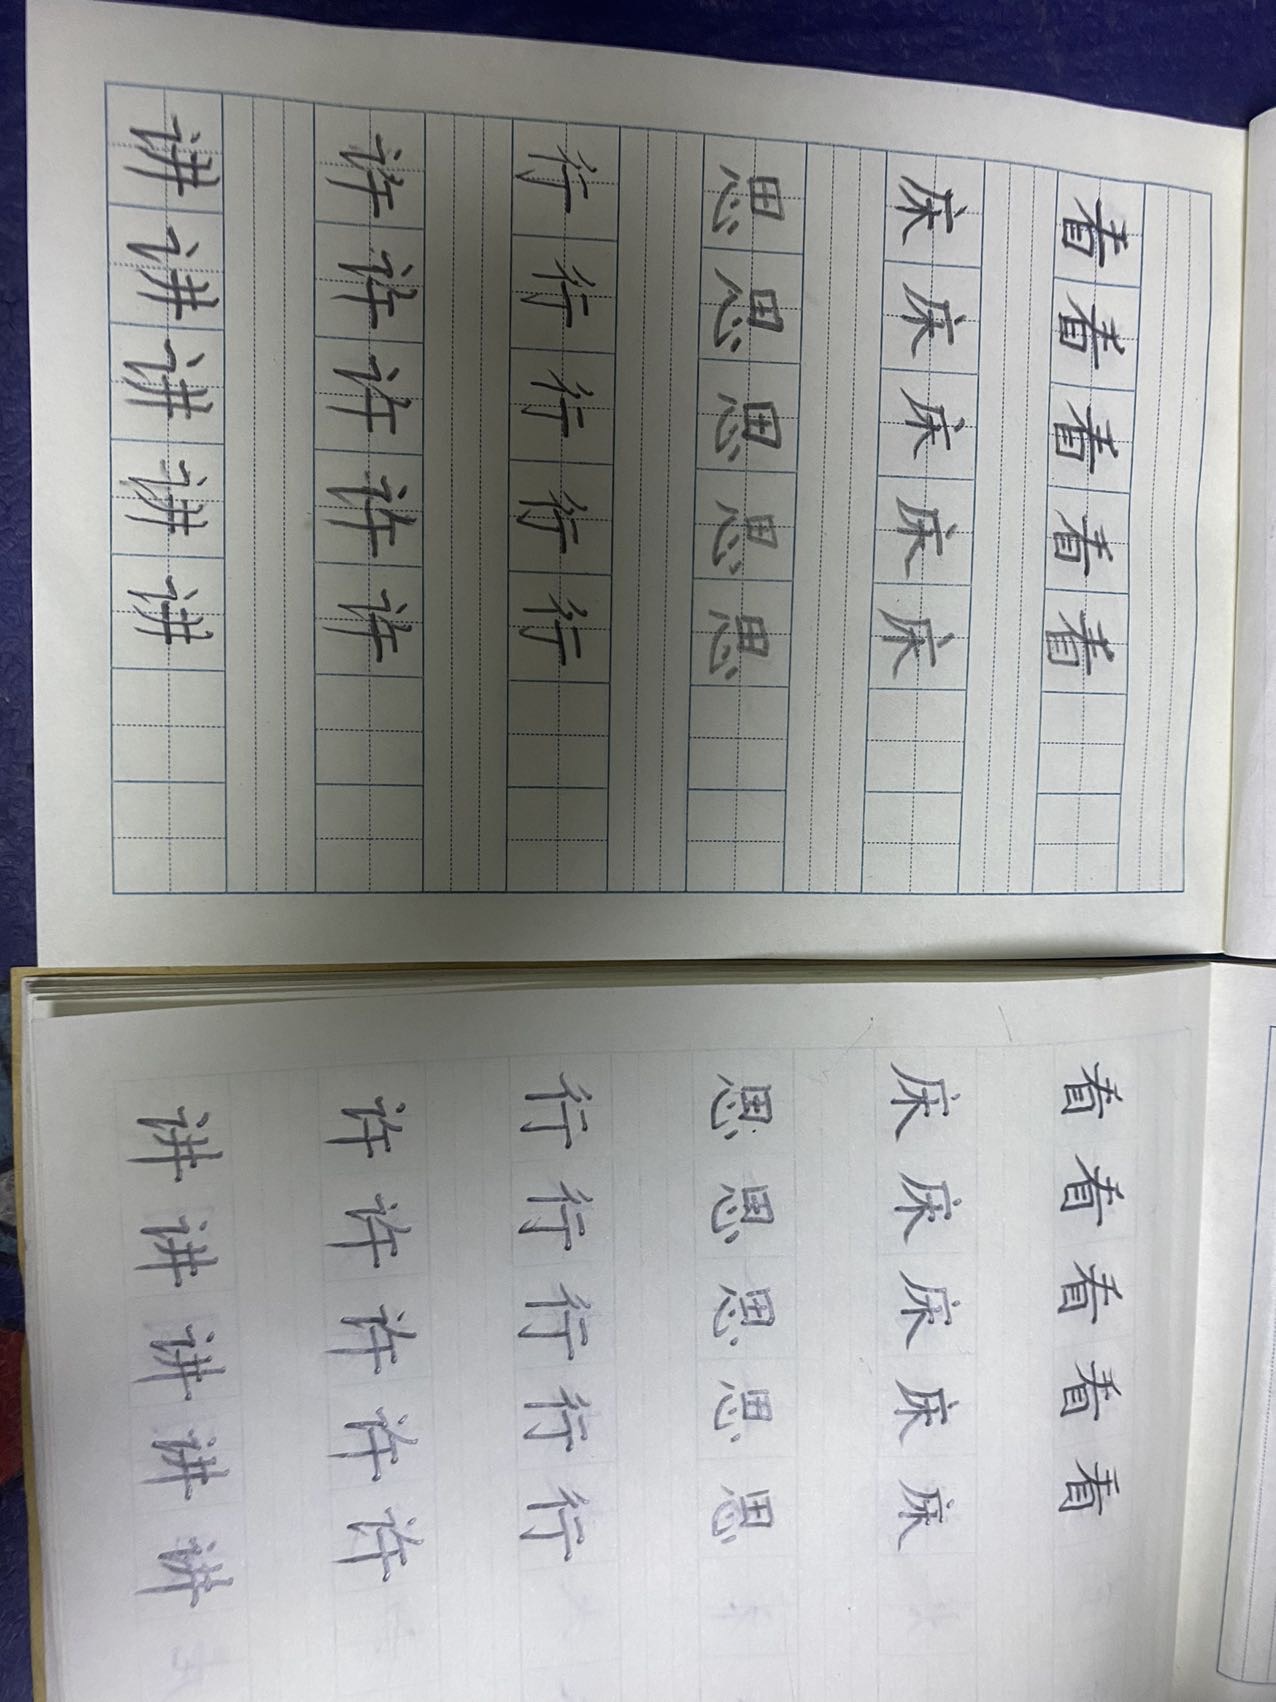 看看看看看
床床床床床
思思思思思
行行行行行
许许许许许
讲讲讲讲讲
看看看看看
床床床床床
思思思思思
行行行行行
许许许许许
讲讲讲讲讲